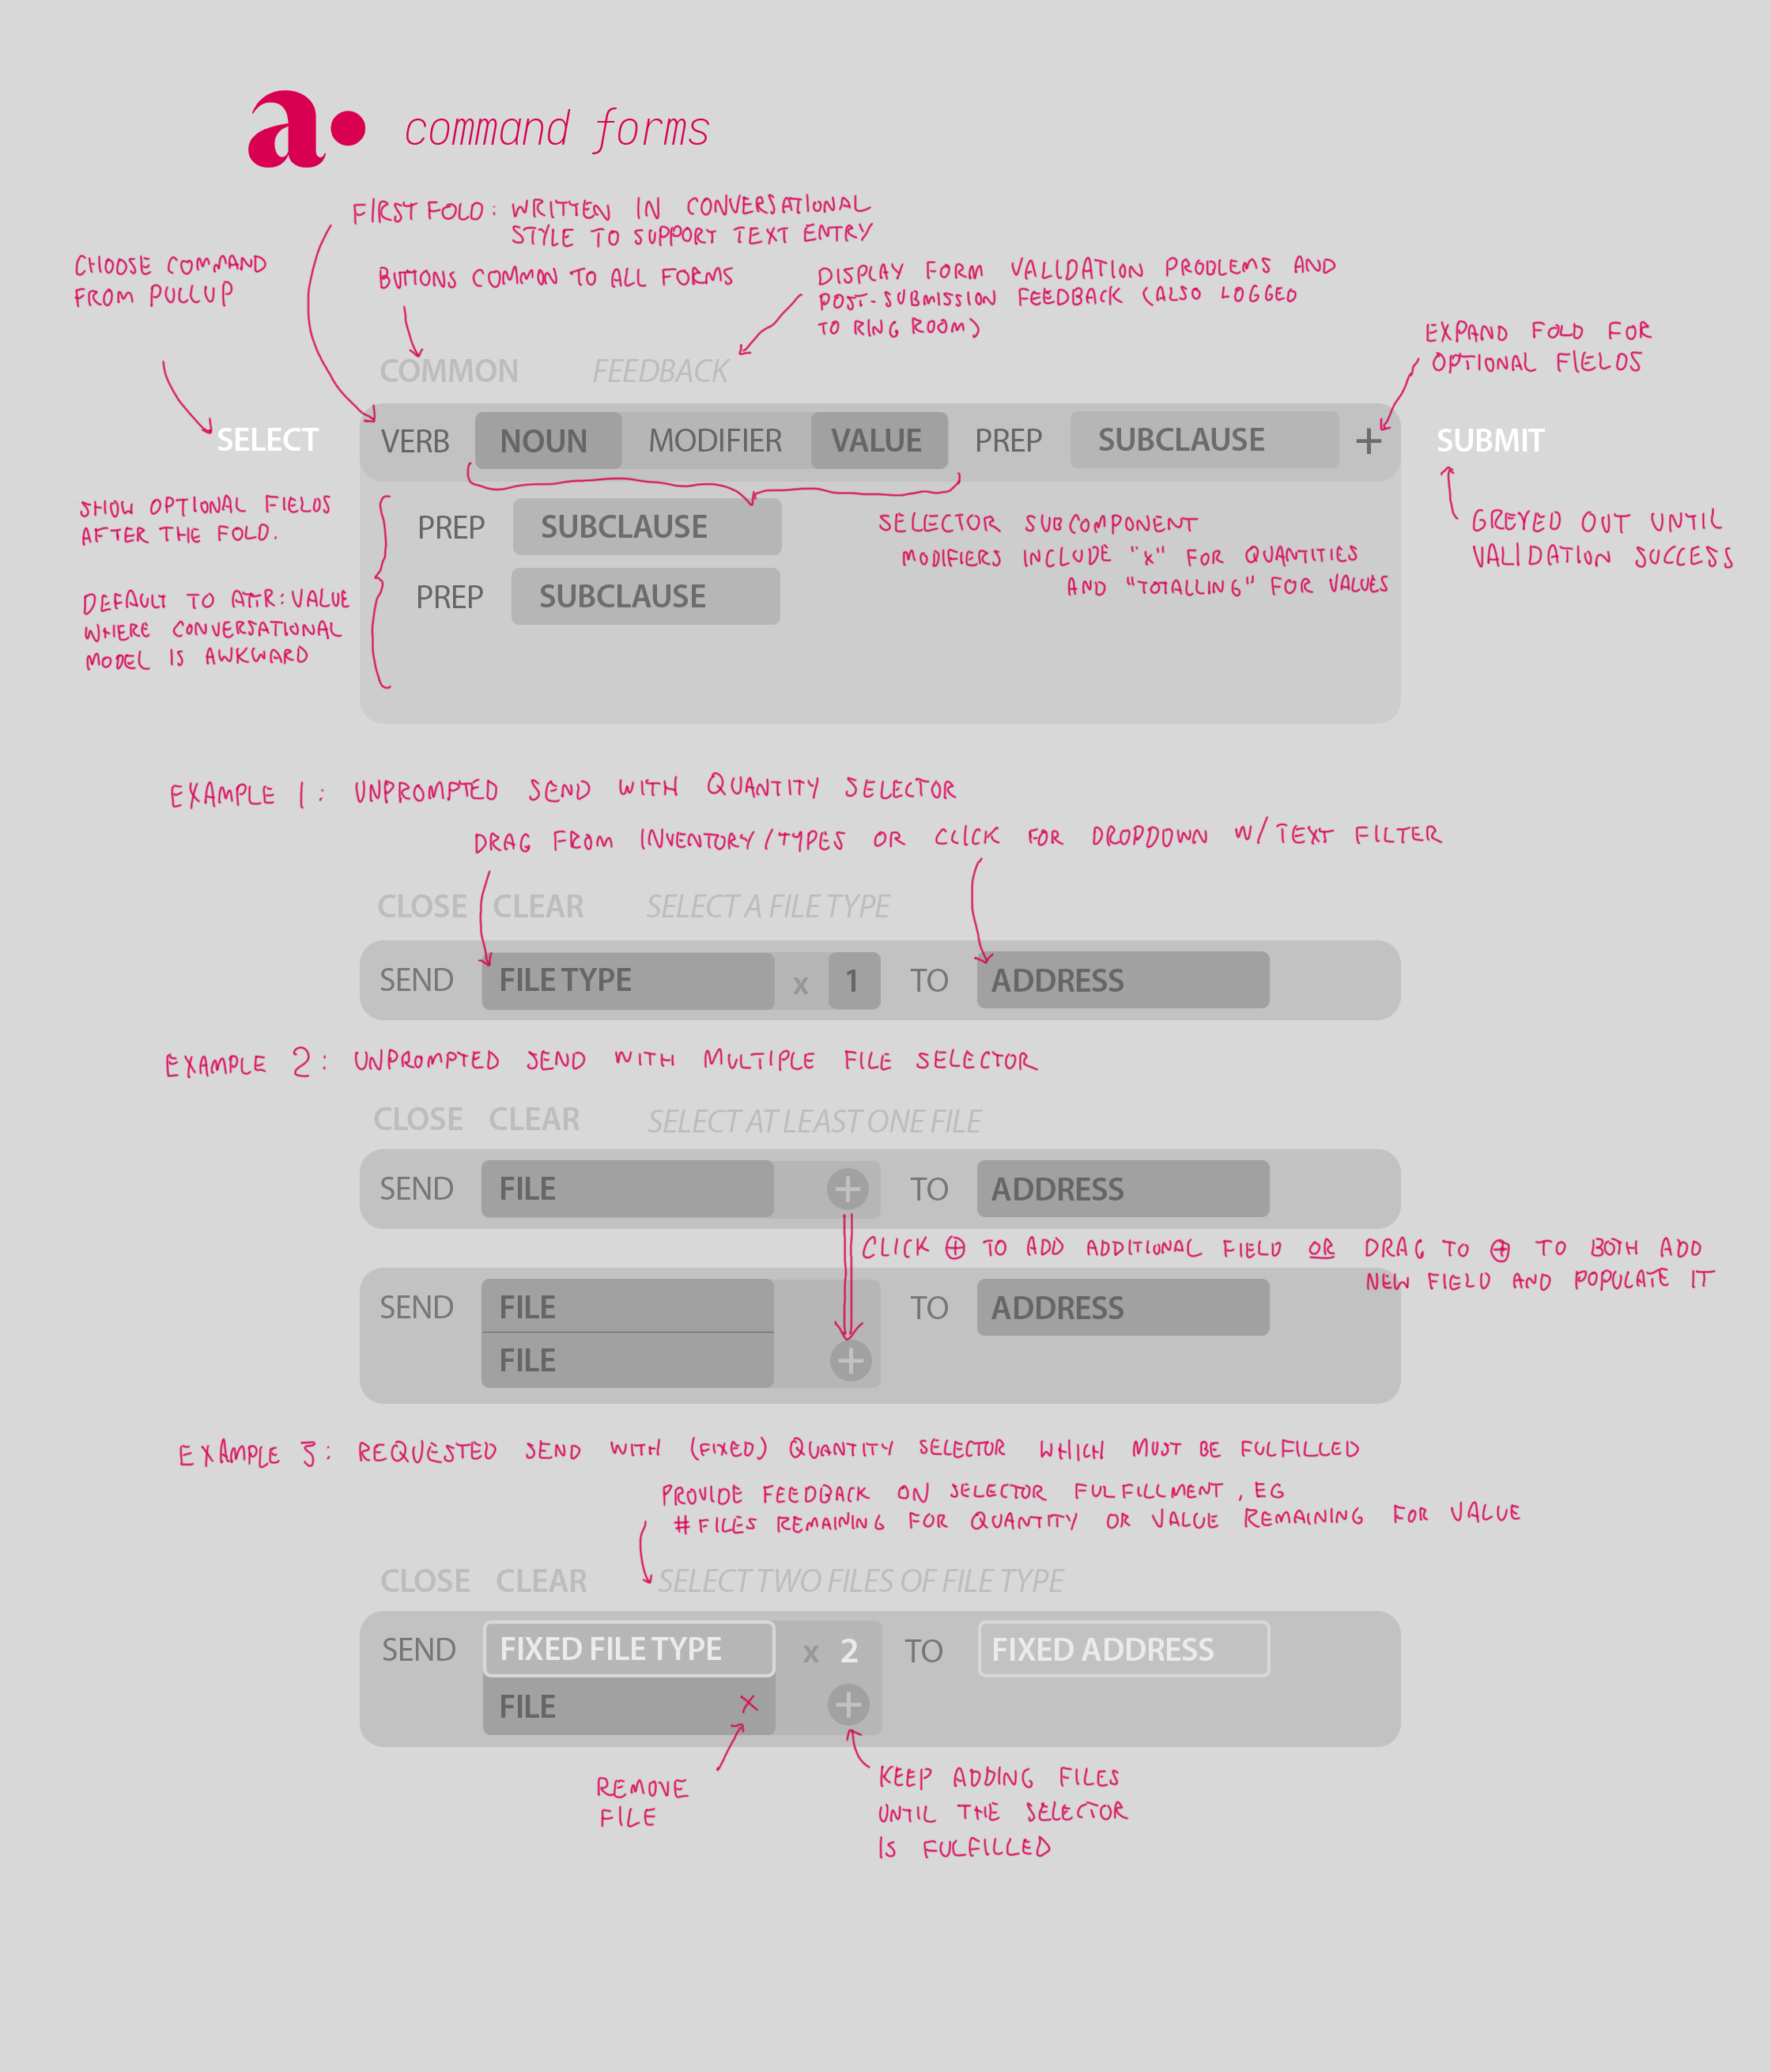 a• command forms
FIRST FOLD: WRITTEN IN CONVERSATIONAL
STYLE TO SUPPORT TEXT ENTRY
CHOOSE COMMAND
FROM PULLUP
BUTTONS COMMON TO ALL FORMS
DISPLAY FORM VALIDATION PROBLEMS AND
POST-SUBMISSION FEEDBACK (ALSO LOGGED
TO RING ROOM)
EXPAND FOLD FOR
OPTIONAL FIELDS
COMMON FEEDBACK
SELECT VERB NOUN MODIFIER VALUE PREP SUBCLAUSE + SUBMIT
SHOW OPTIONAL FIELDS
AFTER THE FOLD.
DEFAULT TO ATTR:VALUE
WHERE CONVERSATIONAL
MODEL IS AWKWARD
PREP SUBCLAUSE
PREP SUBCLAUSE
SELECTOR SUBCOMPONENT
MODIFIERS INCLUDE "X" FOR QUANTITIES
AND "TOTALLING" FOR VALUES
GREYED OUT UNTIL
VALIDATION SUCCESS
EXAMPLE 1: UNPROMPTED SEND WITH QUANTITY SELECTOR
DRAG FROM INVENTORY/TYPES OR CLICK FOR DROPDOWN W/ TEXT FILTER
CLOSE CLEAR SELECT A FILE TYPE
SEND FILE TYPE x 1 TO ADDRESS
EXAMPLE 2: UNPROMPTED SEND WITH MULTIPLE FILE SELECTOR
CLOSE CLEAR SELECT AT LEAST ONE FILE
SEND FILE + TO ADDRESS
CLICK ⊕ TO ADD ADDITIONAL FIELD OR DRAG TO ⊕ TO BOTH ADD
NEW FIELD AND POPULATE IT
SEND FILE TO ADDRESS
FILE +
EXAMPLE 3: REQUESTED SEND WITH (FIXED) QUANTITY SELECTOR WHICH MUST BE FULFILLED
PROVIDE FEEDBACK ON SELECTOR FULFILLMENT, EG
# FILES REMAINING FOR QUANTITY OR VALUE REMAINING FOR VALUE
CLOSE CLEAR SELECT TWO FILES OF FILE TYPE
SEND FIXED FILE TYPE x 2 TO FIXED ADDRESS
FILE X +
REMOVE
FILE
KEEP ADDING FILES
UNTIL THE SELECTOR
IS FULFILLED